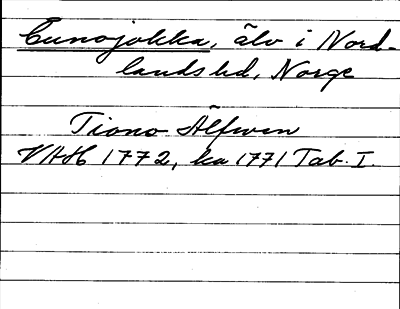 Cunojokka, älv i Nord-
lands led, Norge
Tiono Älfwen
VAH 1772, ka 1771 Tab. I.